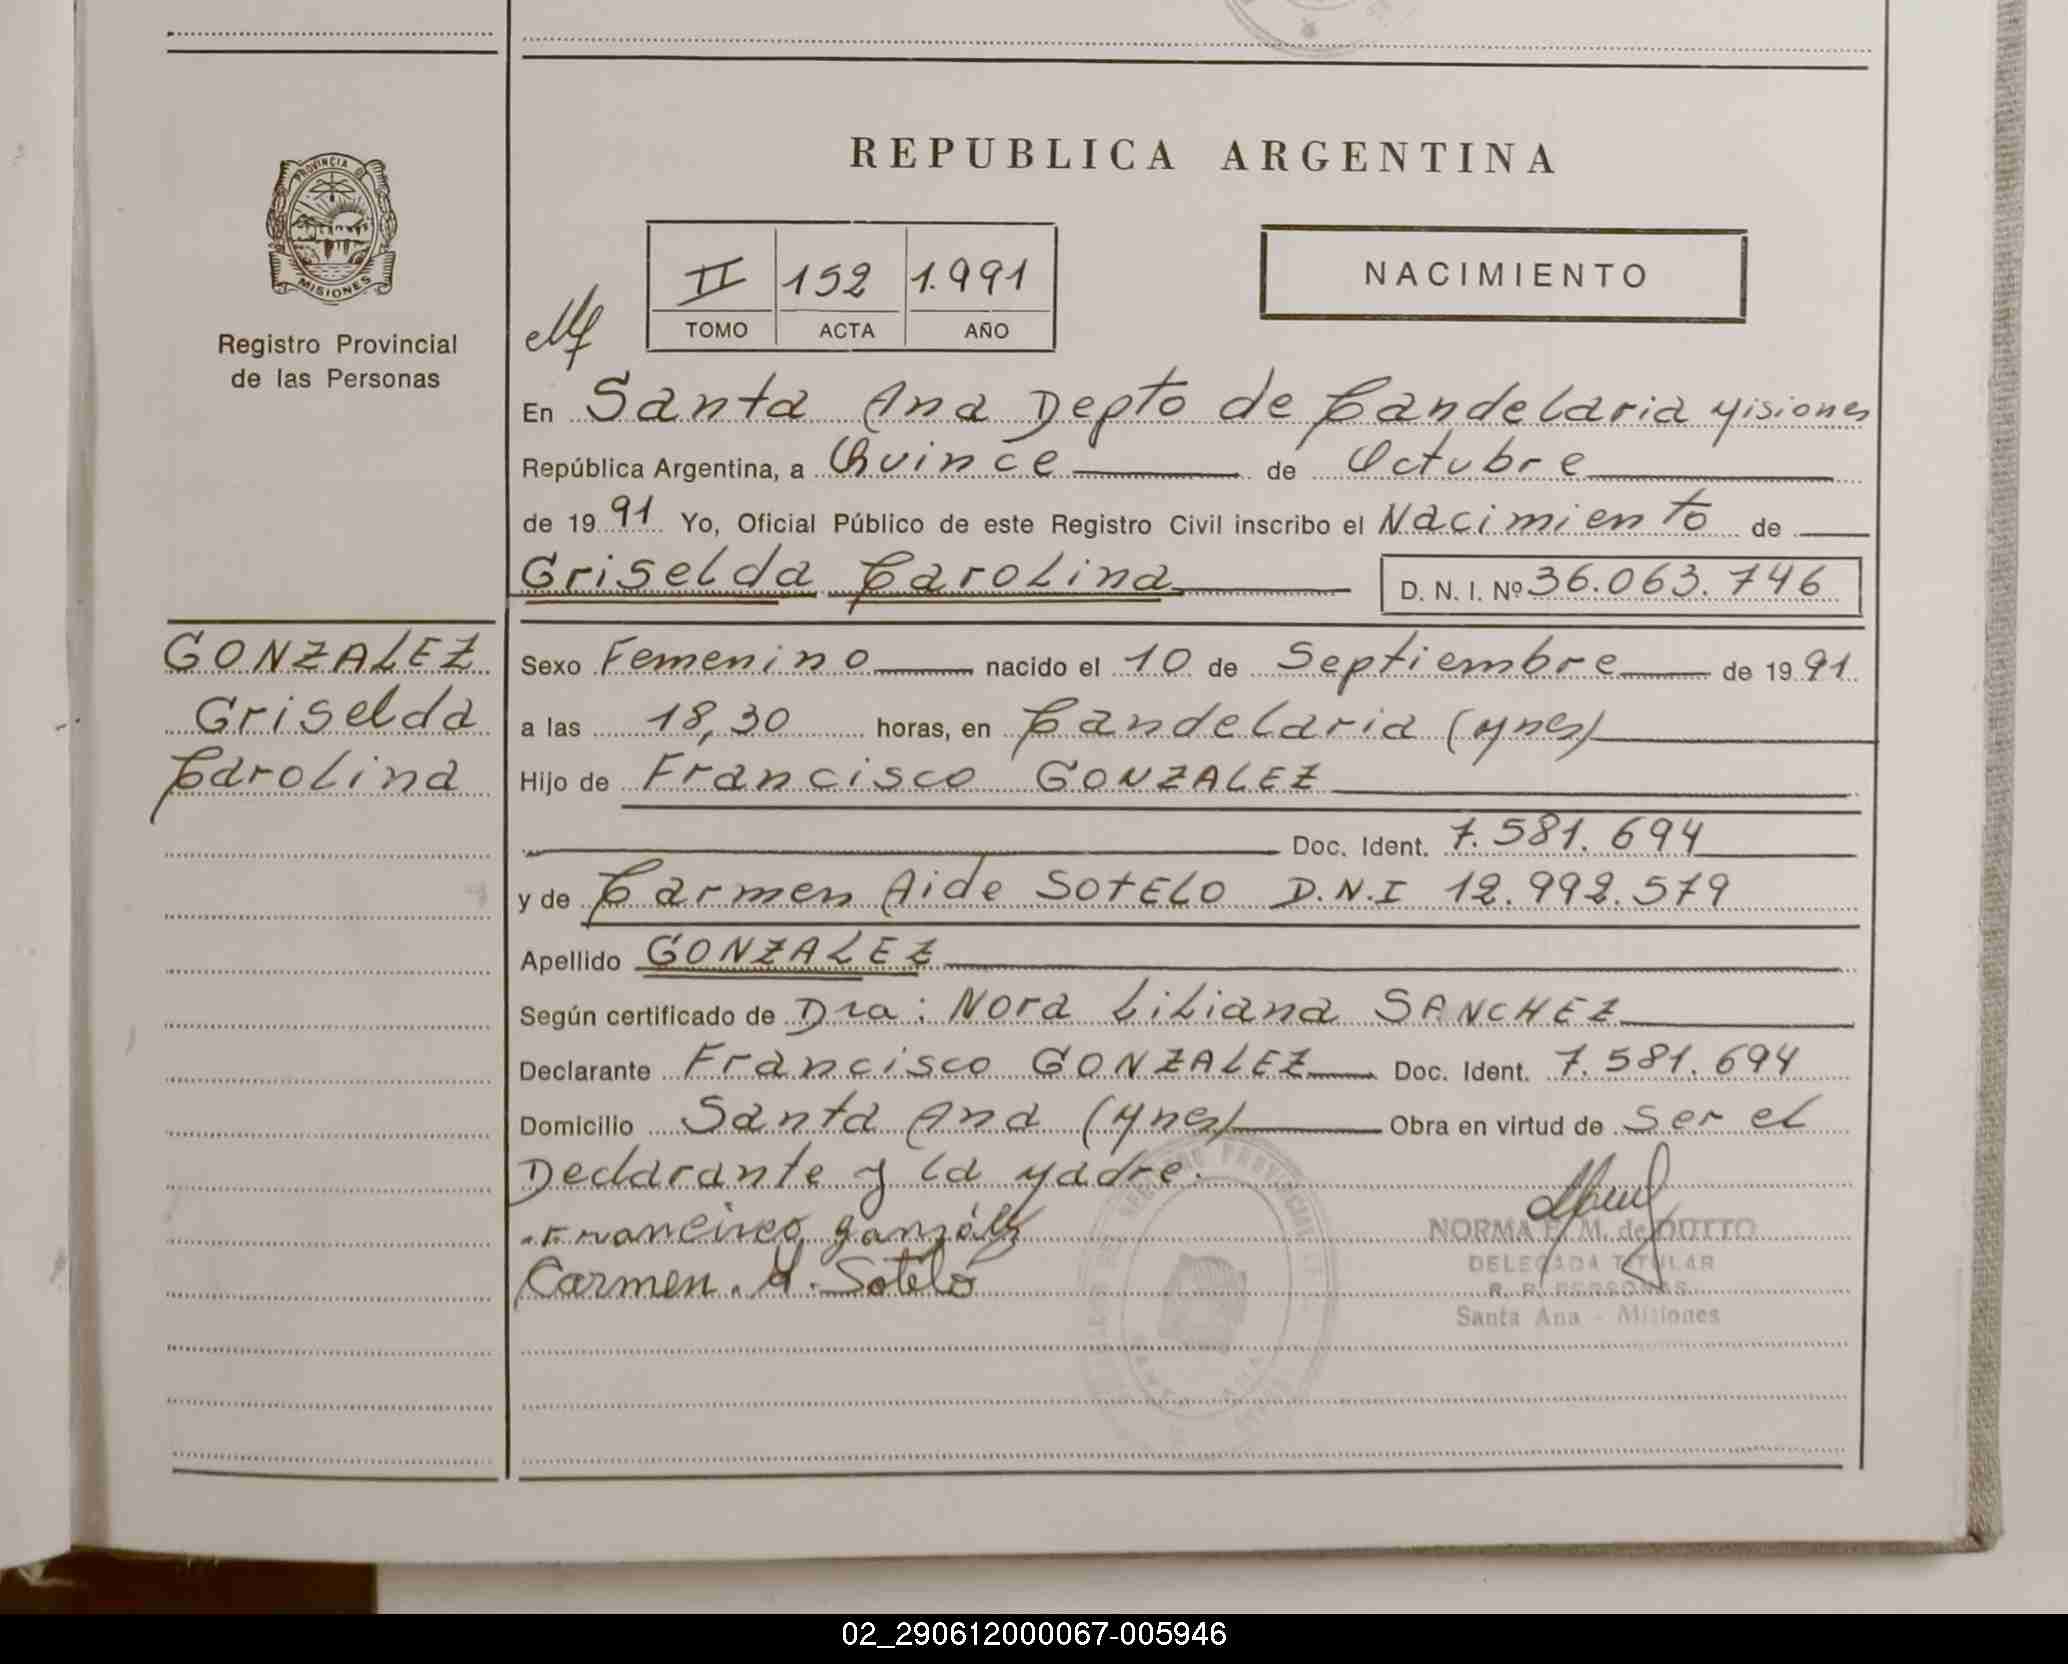 REPUBLICA ARGENTINA
PROVINCIA DE
MISIONES
Registro Provincial
de las Personas
II 152 1.991
TOMO ACTA AÑO
NACIMIENTO
En Santa Ana Depto de Candelaria Misiones
República Argentina, a Quince de Octubre
de 1991 Yo, Oficial Público de este Registro Civil inscribo el Nacimiento de
Griselda Carolina D. N. I. Nº 36.063.746
GONZALEZ
Griselda
Carolina
Sexo Femenino nacido el 10 de Septiembre de 1991
a las 18,30 horas, en Candelaria (Mnes)
Hijo de Francisco GONZALEZ
Doc. Ident. 7.581.694
y de Carmen Aide SOTELO D.N.I 12.992.579
Apellido GONZALEZ
Según certificado de Dra: Nora Liliana SANCHEZ
Declarante Francisco GONZALEZ Doc. Ident. 7.581.694
Domicilio Santa Ana (Mnes) Obra en virtud de ser el
Declarante y la Madre.
Francisco gonzález
Carmen. A. Sotelo
NORMA E. M. de DUTTO
DELEGADA TITULAR
R. P. PERSONAS
Santa Ana - Misiones
02_290612000067-005946